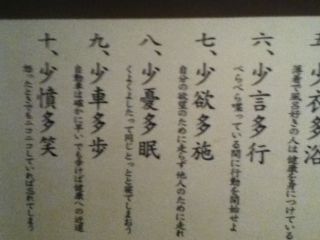 五、少衣多浴
薄着で風呂好きの人は健康を身につけている
六、少言多行
べらべら喋っている間に行動を開始せよ
七、少欲多施
自分の欲望のために走らず他人のために走れ
八、少憂多眠
くよくよしたって同じとっとと寝てしまおう
九、少車多歩
自動車は確かに早いでも歩けば健康への近道
十、少憤多笑
怒ったときでもニコニコしていれば忘れてしまう